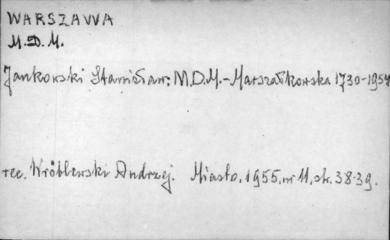 WARSZAWA
M.D.M.
Jankowski Stanisław: M.D.M.-Marszałkowska 1730-1954
rec. Wróblewski Andrzej. Miasto. 1955. nr 11, str. 38-39.